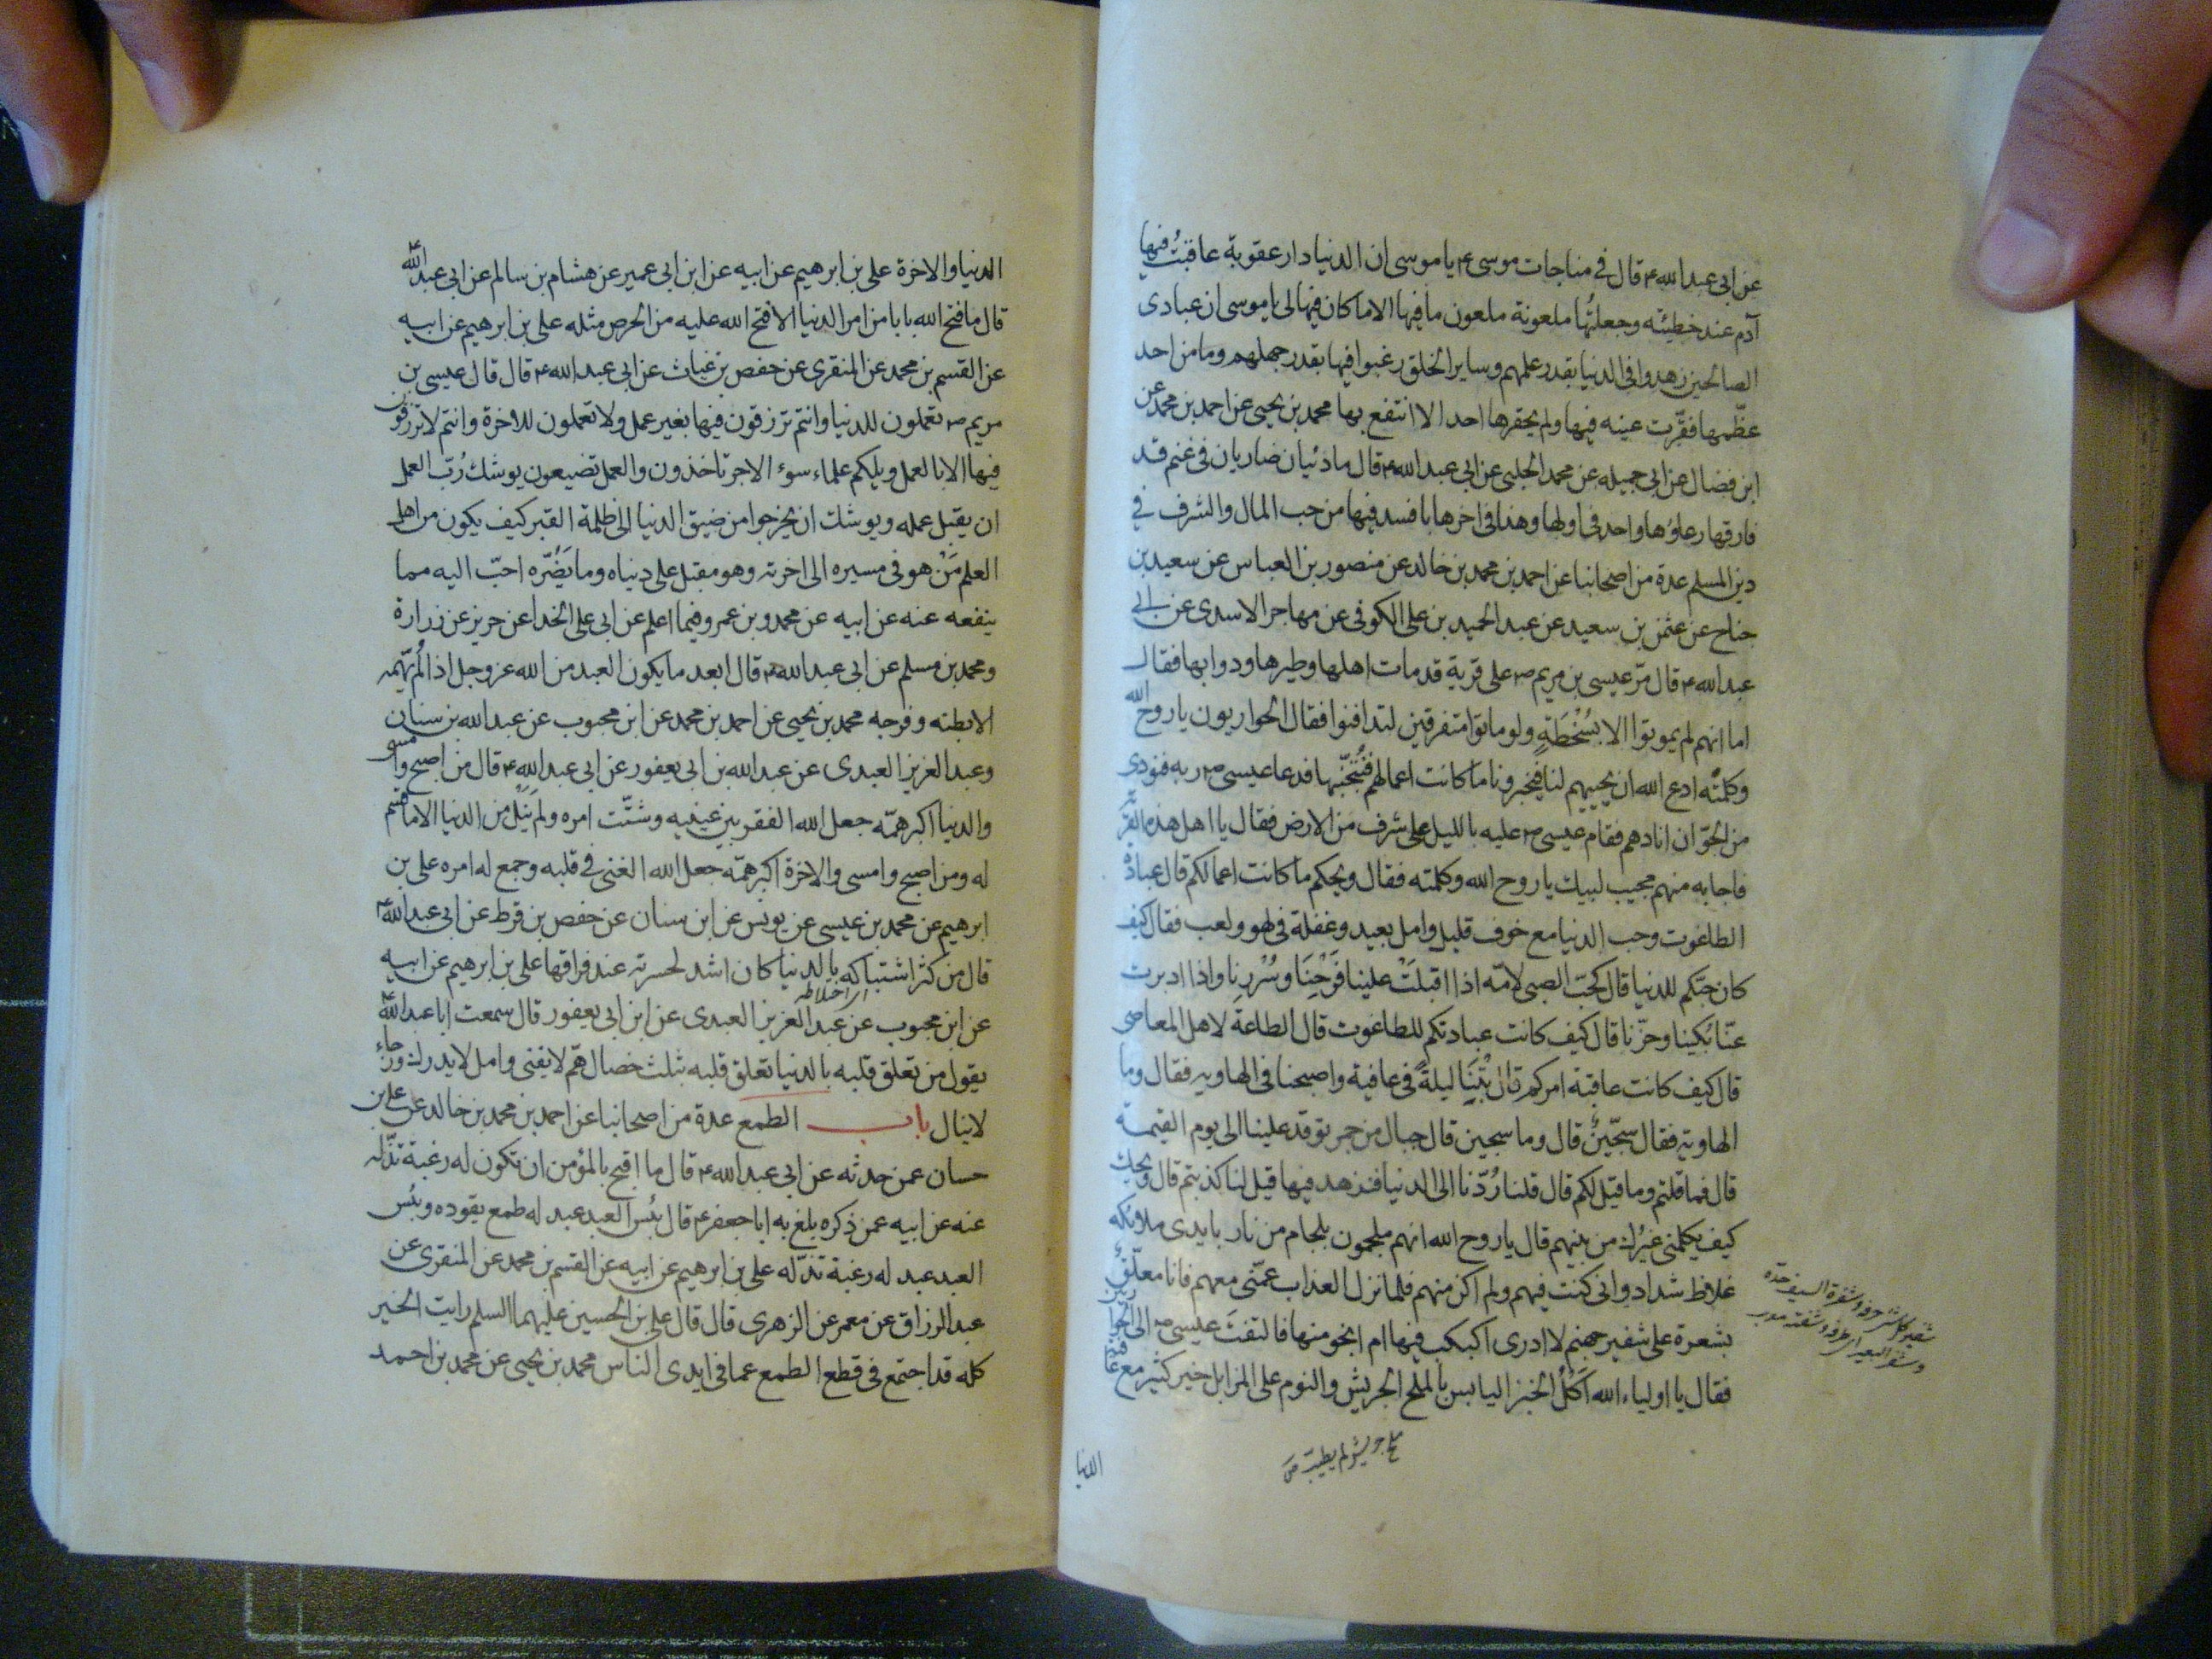 عن ابى عبدالله ع قال فى مناجات موسى ع يا موسى ان الدنيا دار عقوبة عاقبتُ فيها
آدم عند خطيئته وجعلتُها ملعونة ملعون ما فيها الا ما كان فيها لى يا موسى ان عبادى
الصالحين زهدوا فى الدنيا بقدر علمهم وساير الخلق رغبوا فيها بقدر جهلهم وما من احد
عظّمها فقرّت عينه فيها ولم يحقرها احد الا انتفع بها محمد بن يحيى عن احمد بن محمد عن
ابن فضال عن ابى جميله عن محمد الحلبى عن ابى عبدالله ع قال ما ذئبان ضاريان فى غنم قد
فارقها رعاؤها واحد فى اولها وهذا فى اخرها بافسد فيها من حب المال والشرف في
دين المسلم عدة من اصحابنا عن احمد بن محمد بن خالد عن منصور بن العباس عن سعيد بن
جناح عن عثمن بن سعيد عن عبد الحميد بن على الكوفى عن مهاجر الاسدى عن ابى
عبدالله ع قال مرّ عيسى بن مريم ع على قرية قد مات اهلها وطيرها ودوابها فقال
اما انهم لم يموتوا الا بسُخْطَةٍ ولو ماتوا متفرقين لتدافنوا فقال الحواريون يا روح الله
وكلمتُه ادع الله ان يحييهم لنا فيخبرونا ما كانت اعمالهم فنُجنّبها فدعا عيسى ع ربه فنودى
من الجوّ ان نادهم فقام عيسى ع عليه بالليل على شرف من الارض فقال يا اهل هذه القرية
فاجابه منهم مجيب لبيك يا روح الله وكلمته فقال ويحكم ما كانت اعمالكم قال عبادة
الطاغوت وحب الدنيا مع خوف قليل وامل بعيد وغفلة فى لهو ولعب فقال كيف
كان حبّكم للدنيا قال كحبّ الصبى لامّه اذا اقبلَتْ علينا فَرِحْنَا وسُرِرنا واذا ادبرت
عنّا بَكينا وحزنّا قال كيف كانت عبادتكم للطاغوت قال الطاعة لاهل المعاصى
قال كيف كانت عاقبة امركم قال بِتْنَا ليلةً فى عافية واصبحنا فى الهاويه فقال وما
الهاوية فقال سجّينٌ قال وما سجين قال جبال من جمر توقد علينا الى يوم القيمة
قال فما قلتم وما قيل لكم قال قلنا رُدّنا الى الدنيا فنزهد فيها قيل لنا كذبتم قال ويحك
كيف يكلمنى غيرُك من بينهم قال يا روح الله انهم ملجمون بلجام من نار بايدى ملائكه
غلاظ شداد وانى كنت فيهم ولم اكن منهم فلما نزل العذاب عمّنى معهم فانا معلّق
بشعرة على شفير جهنم لا ادرى اكبكب فيها ام انجو منها فالتفتَ عيسى ع الى الحواريين
فقال يا اولياء الله اكلُ الخبز اليابس بالملح الجريش والنوم على المزابل خير كثير مع عافية
ملح جريش لم يطيّب ص
الدنيا
الدنيا والاخرة على بن ابرهيم عن ابيه عن ابن ابى عمير عن هشام بن سالم عن ابى عبدالله ع
قال ما فتح الله بابا من امر الدنيا الا فتح الله عليه من الحرص مثله على بن ابرهيم عن ابيه
عن القسم بن محمد عن المنقرى عن حفص بن غياث عن ابى عبدالله ع قال قال عيسى بن
مريم ع تعملون للدنيا وانتم ترزقون فيها بغير عمل ولا تعملون للاخرة وانتم لا ترزقون
فيها الا بالعمل ويلكم علماء سوء الاجر تاخذون والعمل تضيعون يوشك رُبّ العمل
ان يقبل عمله ويوشك ان يخرجوا من ضيق الدنيا الى ظلمة القبر كيف يكون من اهل
العلم مَنْ هو فى مسيره الى اخرته وهو مقبل على دنياه وما يَضُرّه احبّ اليه مما
ينفعه عنه عن ابيه عن محمد بن عمرو فيما اعلم عن ابى على الحذا عن حريز عن زرارة
ومحمد بن مسلم عن ابى عبدالله ع قال ابعد ما يكون العبد من الله عز وجل اذا لم يُهمّه
الا بطنه وفرجه محمد بن يحيى عن احمد بن محمد عن ابن محبوب عن عبدالله بن سنان
وعبد العزيز العبدى عن عبدالله بن ابى يعفور عن ابى عبدالله ع قال من اصبح وامسى
والدنيا اكبر همّه جعل الله الفقر بين عينيه وشتّت امره ولم يَنَلْ من الدنيا الا ما قسم
له ومن اصبح وامسى والاخرة اكبر همّه جعل الله الغنى فى قلبه وجمع له امره على بن
ابرهيم عن محمد بن عيسى عن يونس عن ابن سنان عن حفص بن قرط عن ابى عبدالله ع
قال من كثر اشتباكه بالدنيا كان اشد لحسرته عند فراقها على بن ابرهيم عن ابيه
عن ابن محبوب عن عبد العزيز العبدى عن ابن ابى يعفور قال سمعت ابا عبدالله ع
يقول من تعلق قلبه بالدنيا تعلق قلبه بثلث خصال همّ لا يفنى وامل لا يدرك ورجاء
لا ينال باب الطمع عدة من اصحابنا عن احمد بن محمد بن خالد عن على بن
حسان عمن حدثه عن ابى عبدالله ع قال ما اقبح بالمؤمن ان تكون له رغبة تذلّه
عنه عن ابيه عمن ذكره بلغ به ابا جعفر ع قال بئس العبد عبد له طمع يقوده وبئس
العبد عبد له رغبة تذلّه على بن ابرهيم عن ابيه عن القسم بن محمد عن المنقرى عن
عبد الرزاق عن معمر عن الزهرى قال قال على بن الحسين عليهما السلم رايت الخير
كله قد اجتمع فى قطع الطمع عما فى ايدى الناس محمد بن يحيى عن محمد بن احمد